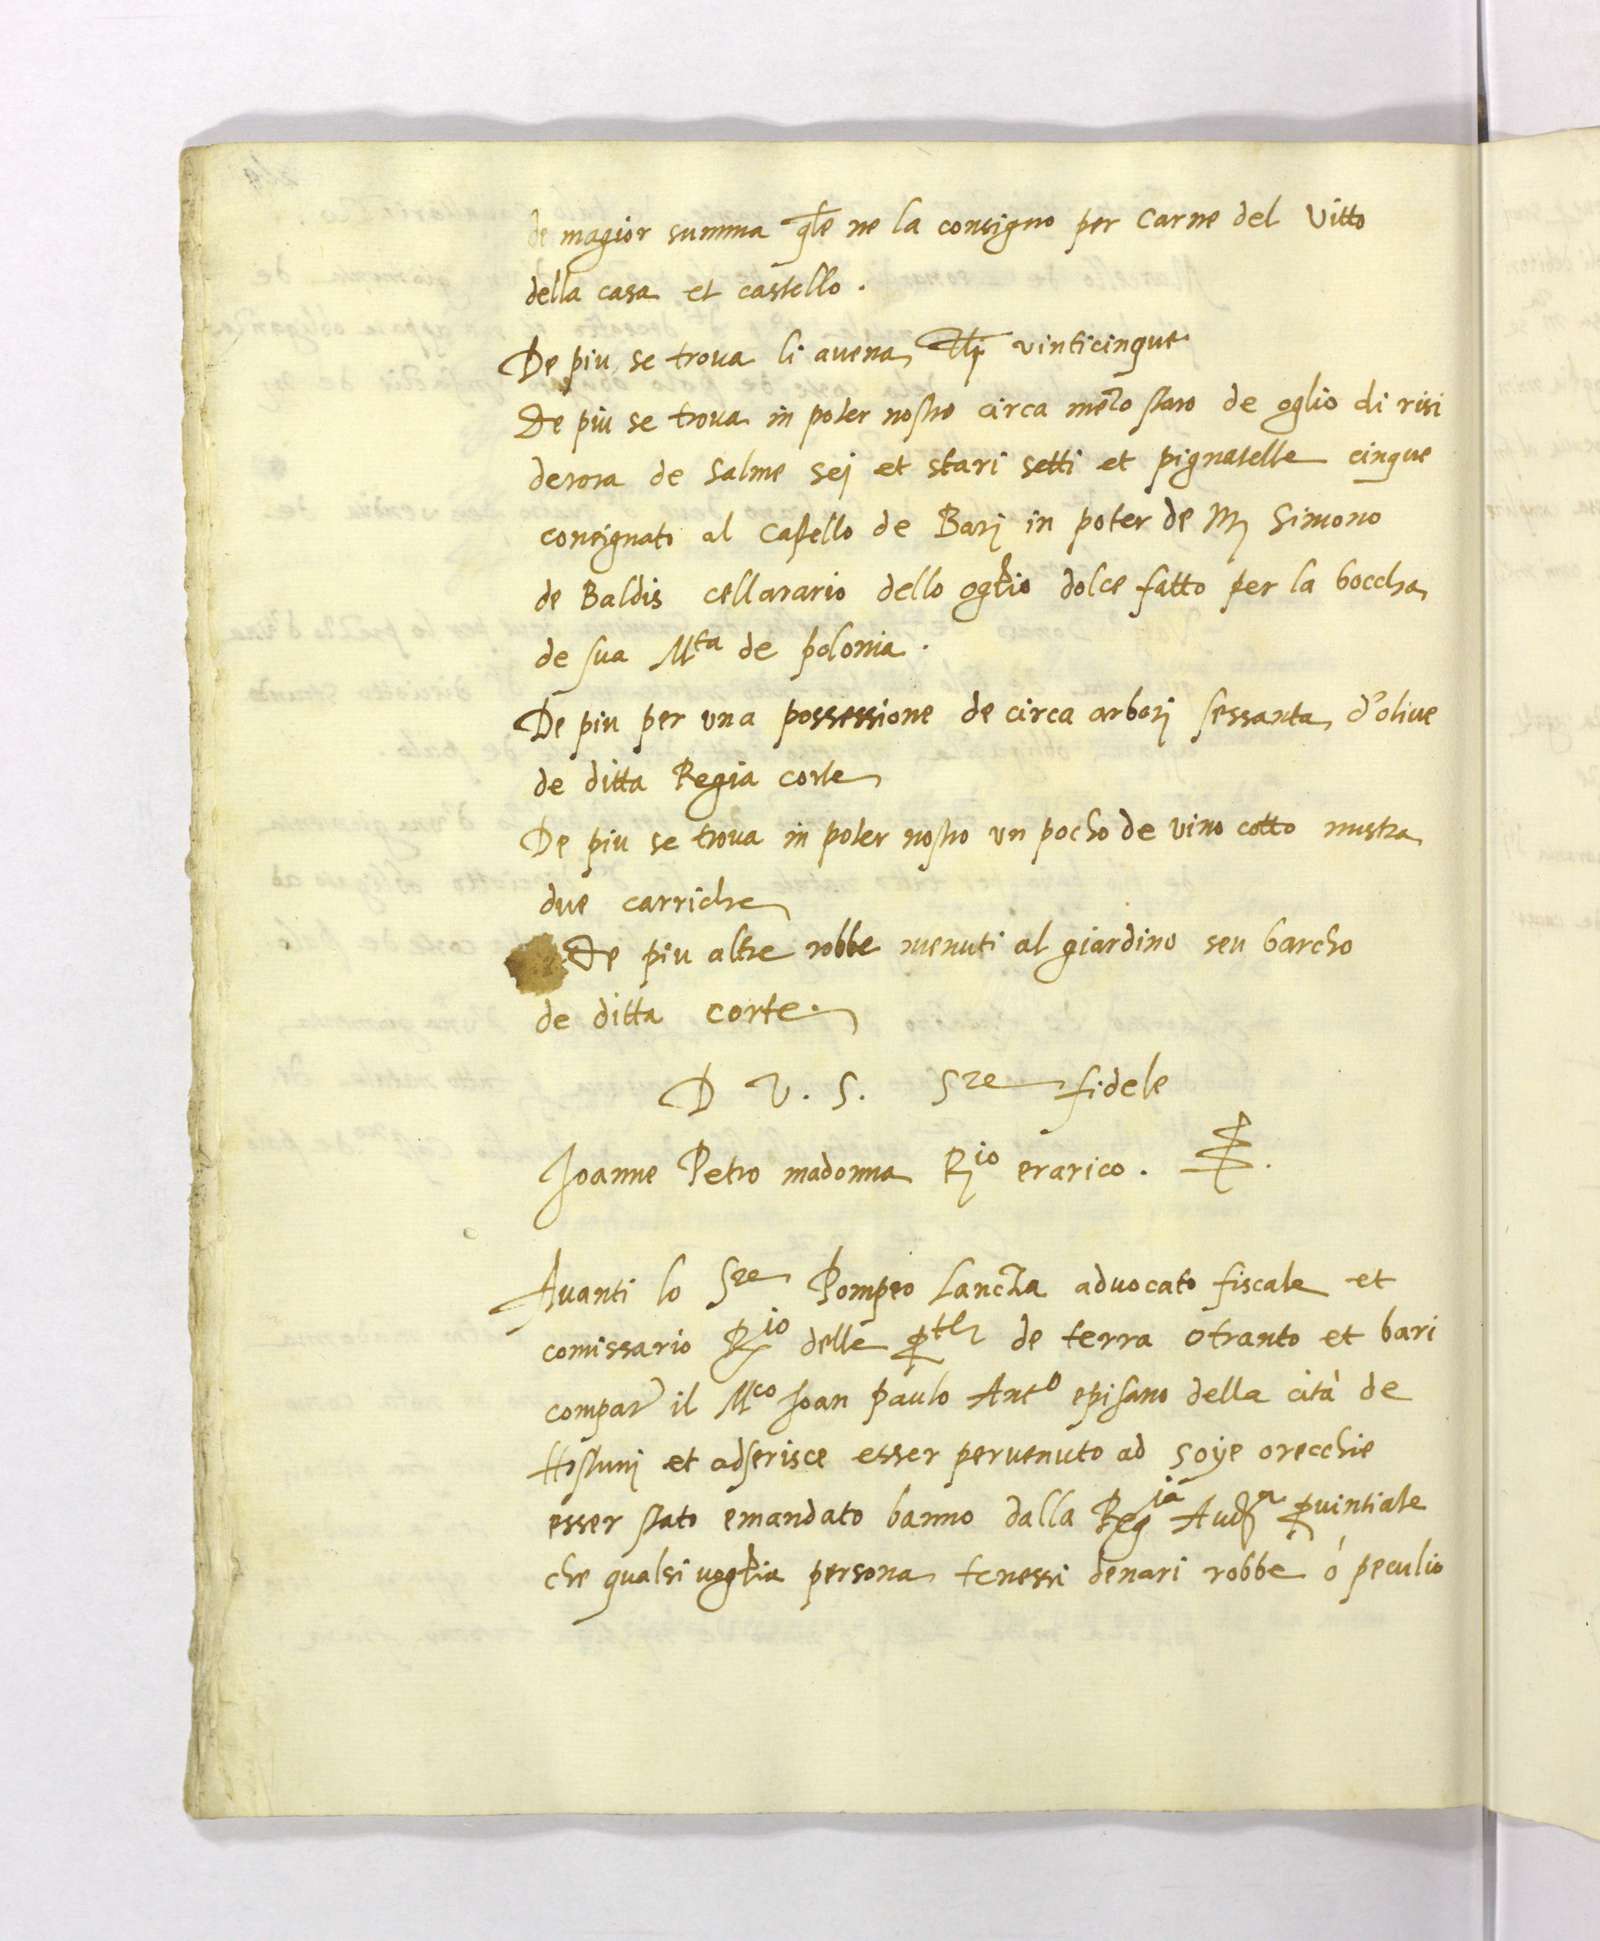 de magior summa qle ne la consigno per carne del vitto
della casa et castello.
De piu se trova li avena tli vinticinque
De piu se trova in poter nostro circa mezo staro de oglio di risi
derora de salme sej et stari setti et pignatelle cinque
consignato al castello de Barj in poter de Mj Simono
de Baldis cellarario dello oglio dolce fatto per la boccha
de sua Mta de polonia.
De piu per una possessione de circa arborj sessanta d'olive
de ditta Regia corte
De piu se trova in poter nostro un pocho de vino cotto mustra
due carriche
De piu altre robbe menuti al giardino seu barcho
de ditta corte.
D V. S. Sre fidele
Joanne Petro madonna Rio erarico.
Avanti lo Sre Pompeo Lancza advocato fiscale et
comissario Rio delle ptie de terra otranto et bari
compar il Mco Joan paulo Anto episano della cità de
Hostunj et adserisce esser pervenuto ad soye orecchie
esser stato emandato banno dalla Regia Auda pvintiale
che qualsi voglia persona tenessi denari robbe ó peculio